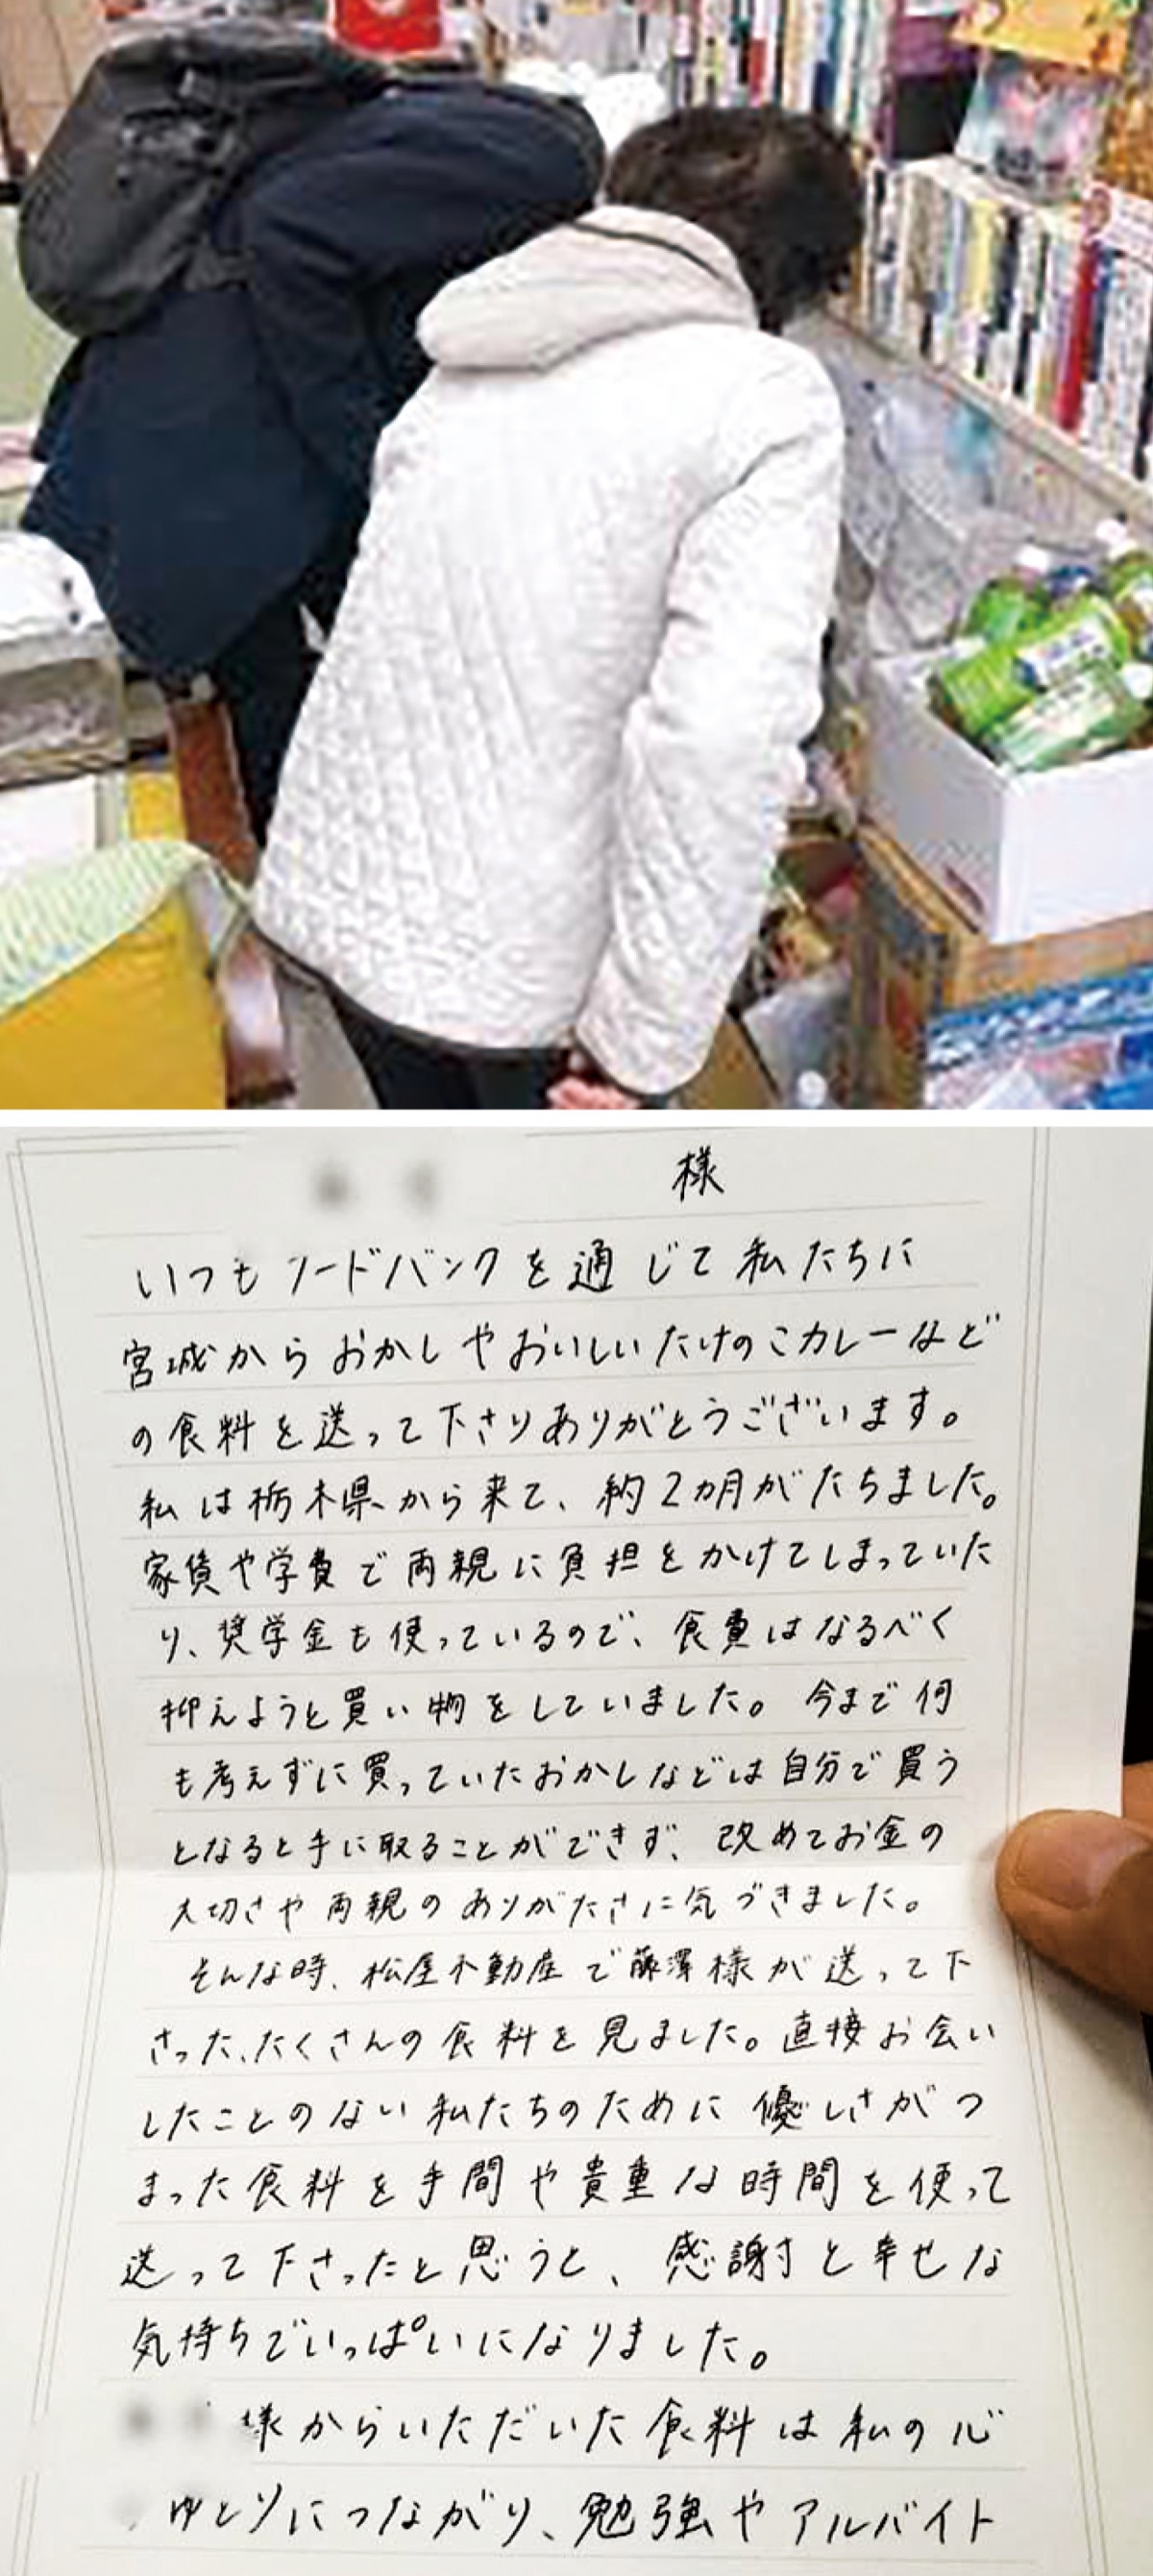 様
いつもフードバンクを通じて私たちに
宮城からおかしやおいしいたけのこカレーなど
の食料を送って下さりありがとうございます。
私は栃木県から来て、約2カ月がたちました。
家賃や学費で両親に負担をかけてしまっていた
り、奨学金も使っているので、食費はなるべく
抑えようと買い物をしていました。今まで何
も考えずに買っていたおかしなどは自分で買う
となると手に取ることができず、改めてお金の
大切さや両親のありがたさに気づきました。
そんな時、松屋不動産で藤澤様が送って下
さった、たくさんの食料を見ました。直接お会い
したことのない私たちのために優しさがつ
まった食料を手間や貴重な時間を使って
送って下さったと思うと、感謝と幸せな
気持ちでいっぱいになりました。
様からいただいた食料は私の心
ゆとりにつながり、勉強やアルバイト